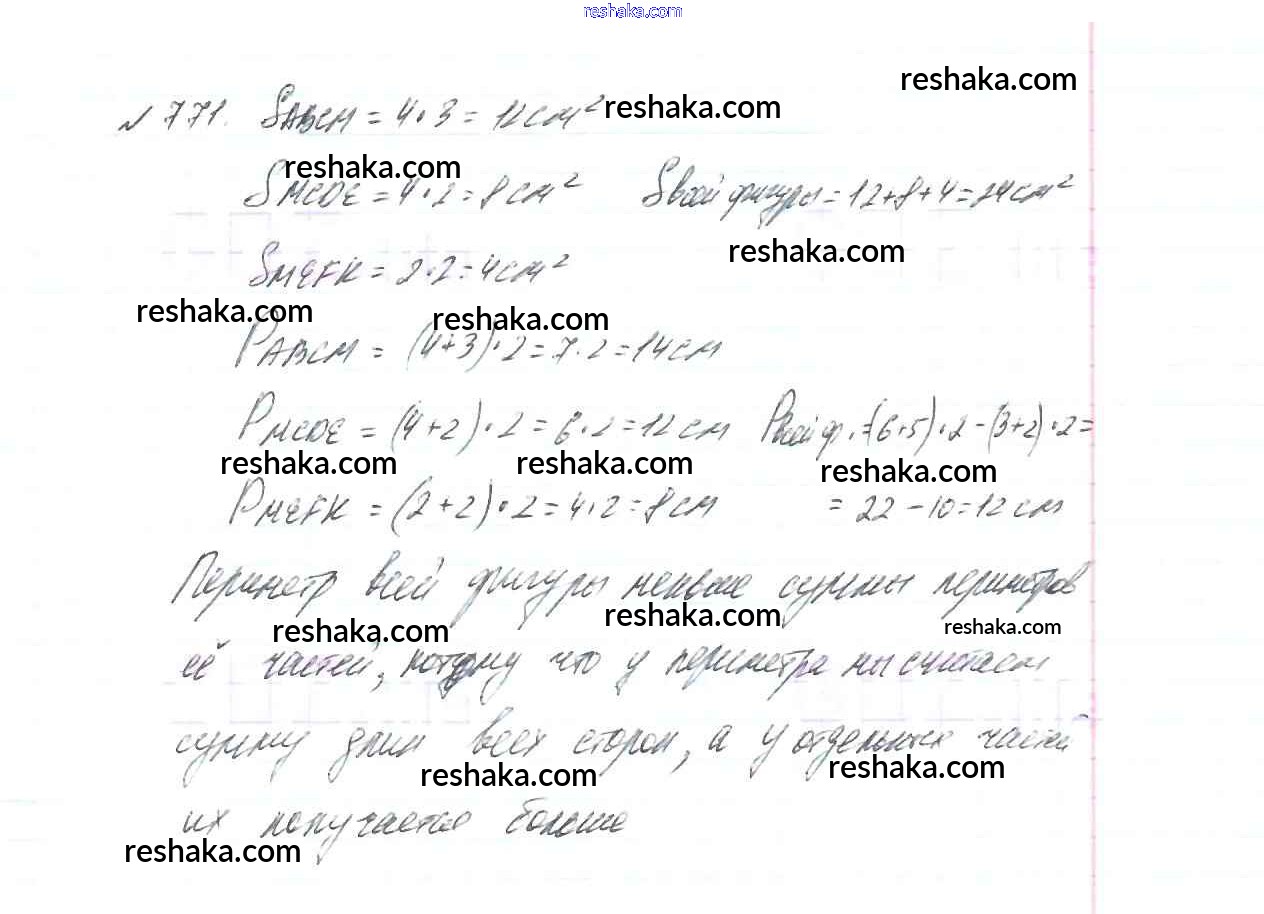 reshaka.com
reshaka.com
№ 771. SABCM = 4·3 = 12 см² reshaka.com
reshaka.com
SMCDE = 4·2 = 8 см² Sвсей фигуры = 12+8+4=24 см²
reshaka.com
SMEFK = 2·2=4 см²
reshaka.com reshaka.com
PABCM = (4+3)·2=7·2=14 см
PMCDE = (4+2)·2=6·2=12 см Pвсей ф.=(6+5)·2-(3+2)·2=
reshaka.com reshaka.com reshaka.com
PMEFK = (2+2)·2=4·2=8 см = 22-10=12 см
Периметр всей фигуры меньше суммы периметров
reshaka.com reshaka.com reshaka.com
её частей, потому что у периметра мы считаем
сумму длин всех сторон, а у отдельных частей
reshaka.com reshaka.com
их получается больше
reshaka.com